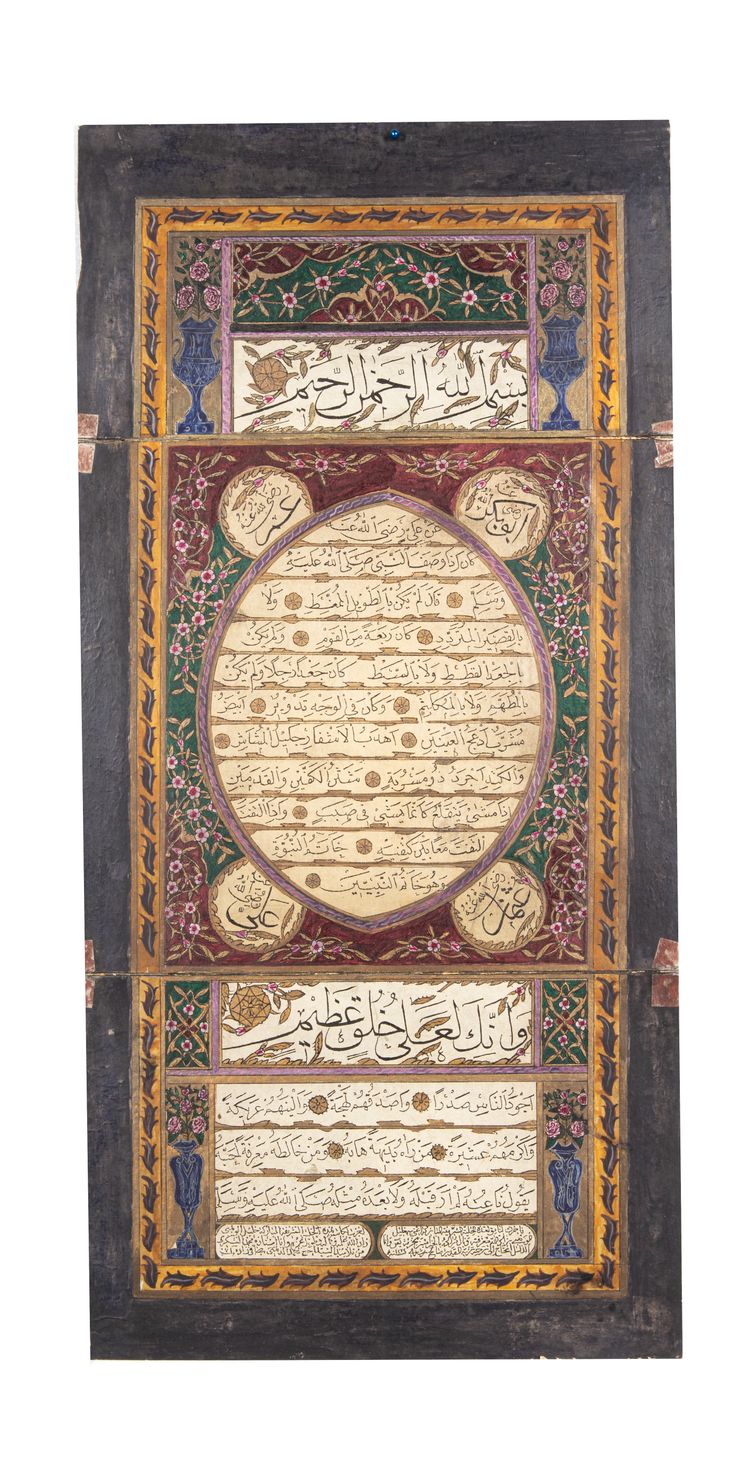 بسم الله الرحمن الرحيم
ابى بكر رضى الله عنه
عمر رضى الله عنه
عن على رضى الله عنه
كان اذا وصف النبى صلى الله عليه
وسلم قال لم يكن بالطويل الممغط ولا
بالقصير المتردد كان ربعة من القوم ولم يكن
بالجعد القطط ولا بالسبط كان جعدا رجلا ولم يكن
بالمطهم ولا بالمكلثم وكان فى الوجه تدوير ابيض
مشرب ادعج العينين اهدب الاشفار جليل المشاش
والكتد اجرد ذو مسربة شثن الكفين والقدمين
اذا مشى يتقلع كانما يمشى فى صبب واذا التفت
التفت معا بين كتفيه خاتم النبوة
وهو خاتم النبيين
عثمن رضى الله عنه
على رضى الله عنه
وانك لعلى خلق عظيم
اجود الناس صدرا واصدقهم لهجة والينهم عريكة
واكرمهم عشيرة من راه بديهة هابه ومن خالطه معرفة احبه
يقول ناعته لم ار قبله ولا بعده مثله صلى الله عليه وسلم